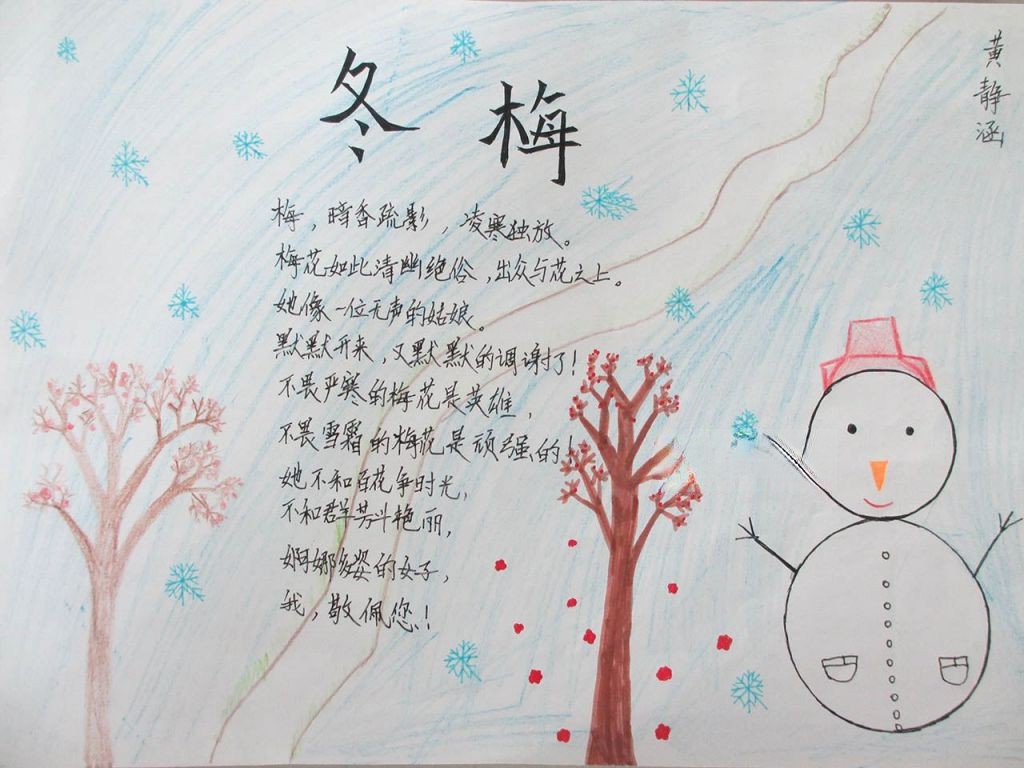 冬梅
黄静涵
梅，暗香疏影，凌寒独放。
梅花如此清幽绝俗，出众与花之上。
她像一位无声的姑娘。
默默开来，又默默的调谢了！
不畏严寒的梅花是英雄，
不畏雪霜的梅花是顽强的！
她不和百花争时光，
不和群芳斗艳丽，
婀娜多姿的女子，
我，敬佩您！